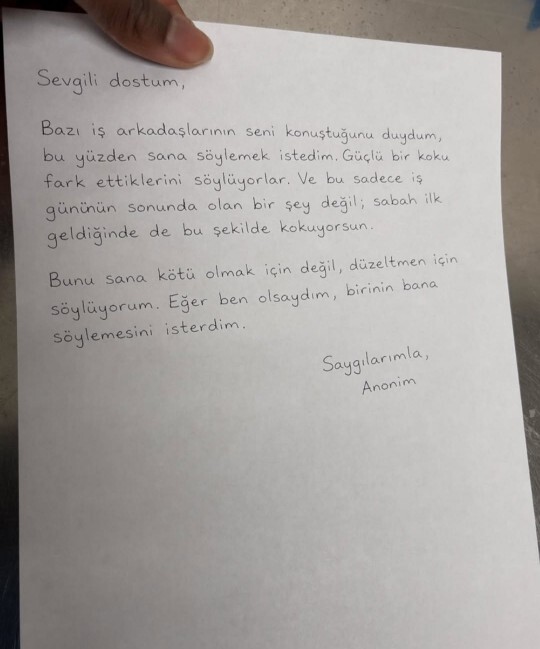 Sevgili dostum,
Bazı iş arkadaşlarının seni konuştuğunu duydum,
bu yüzden sana söylemek istedim. Güçlü bir koku
fark ettiklerini söylüyorlar. Ve bu sadece iş
gününün sonunda olan bir şey değil; sabah ilk
geldiğinde de bu şekilde kokuyorsun.
Bunu sana kötü olmak için değil, düzeltmen için
söylüyorum. Eğer ben olsaydım, birinin bana
söylemesini isterdim.
Saygılarımla,
Anonim